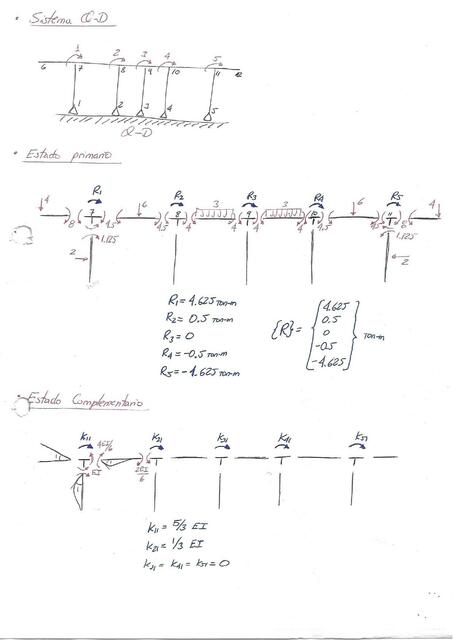 • Sistema Q-D
1 2 3 4 5
6 7 8 9 10 11 12
1 2 3 4 5
Q-D
• Estado primario
R1 R2 R3 R4 R5
4 6 3 3 6 4
7 8 9 10 11
8 4.5 4.5 4 4 4 4 4.5 4.5 8
1.125 1.125
2 2
R1 = 4.625 Ton-m
R2 = 0.5 Ton-m
R3 = 0
R4 = -0.5 Ton-m
R5 = -4.625 Ton-m
{R} = {4.625 0.5 0 -0.5 -4.625} Ton-m
• Estado Complementario
K11 K21 K31 K41 K51
4EI/6
EI
2EI/6
K11 = 5/3 EI
K21 = 1/3 EI
K31 = K41 = K51 = 0